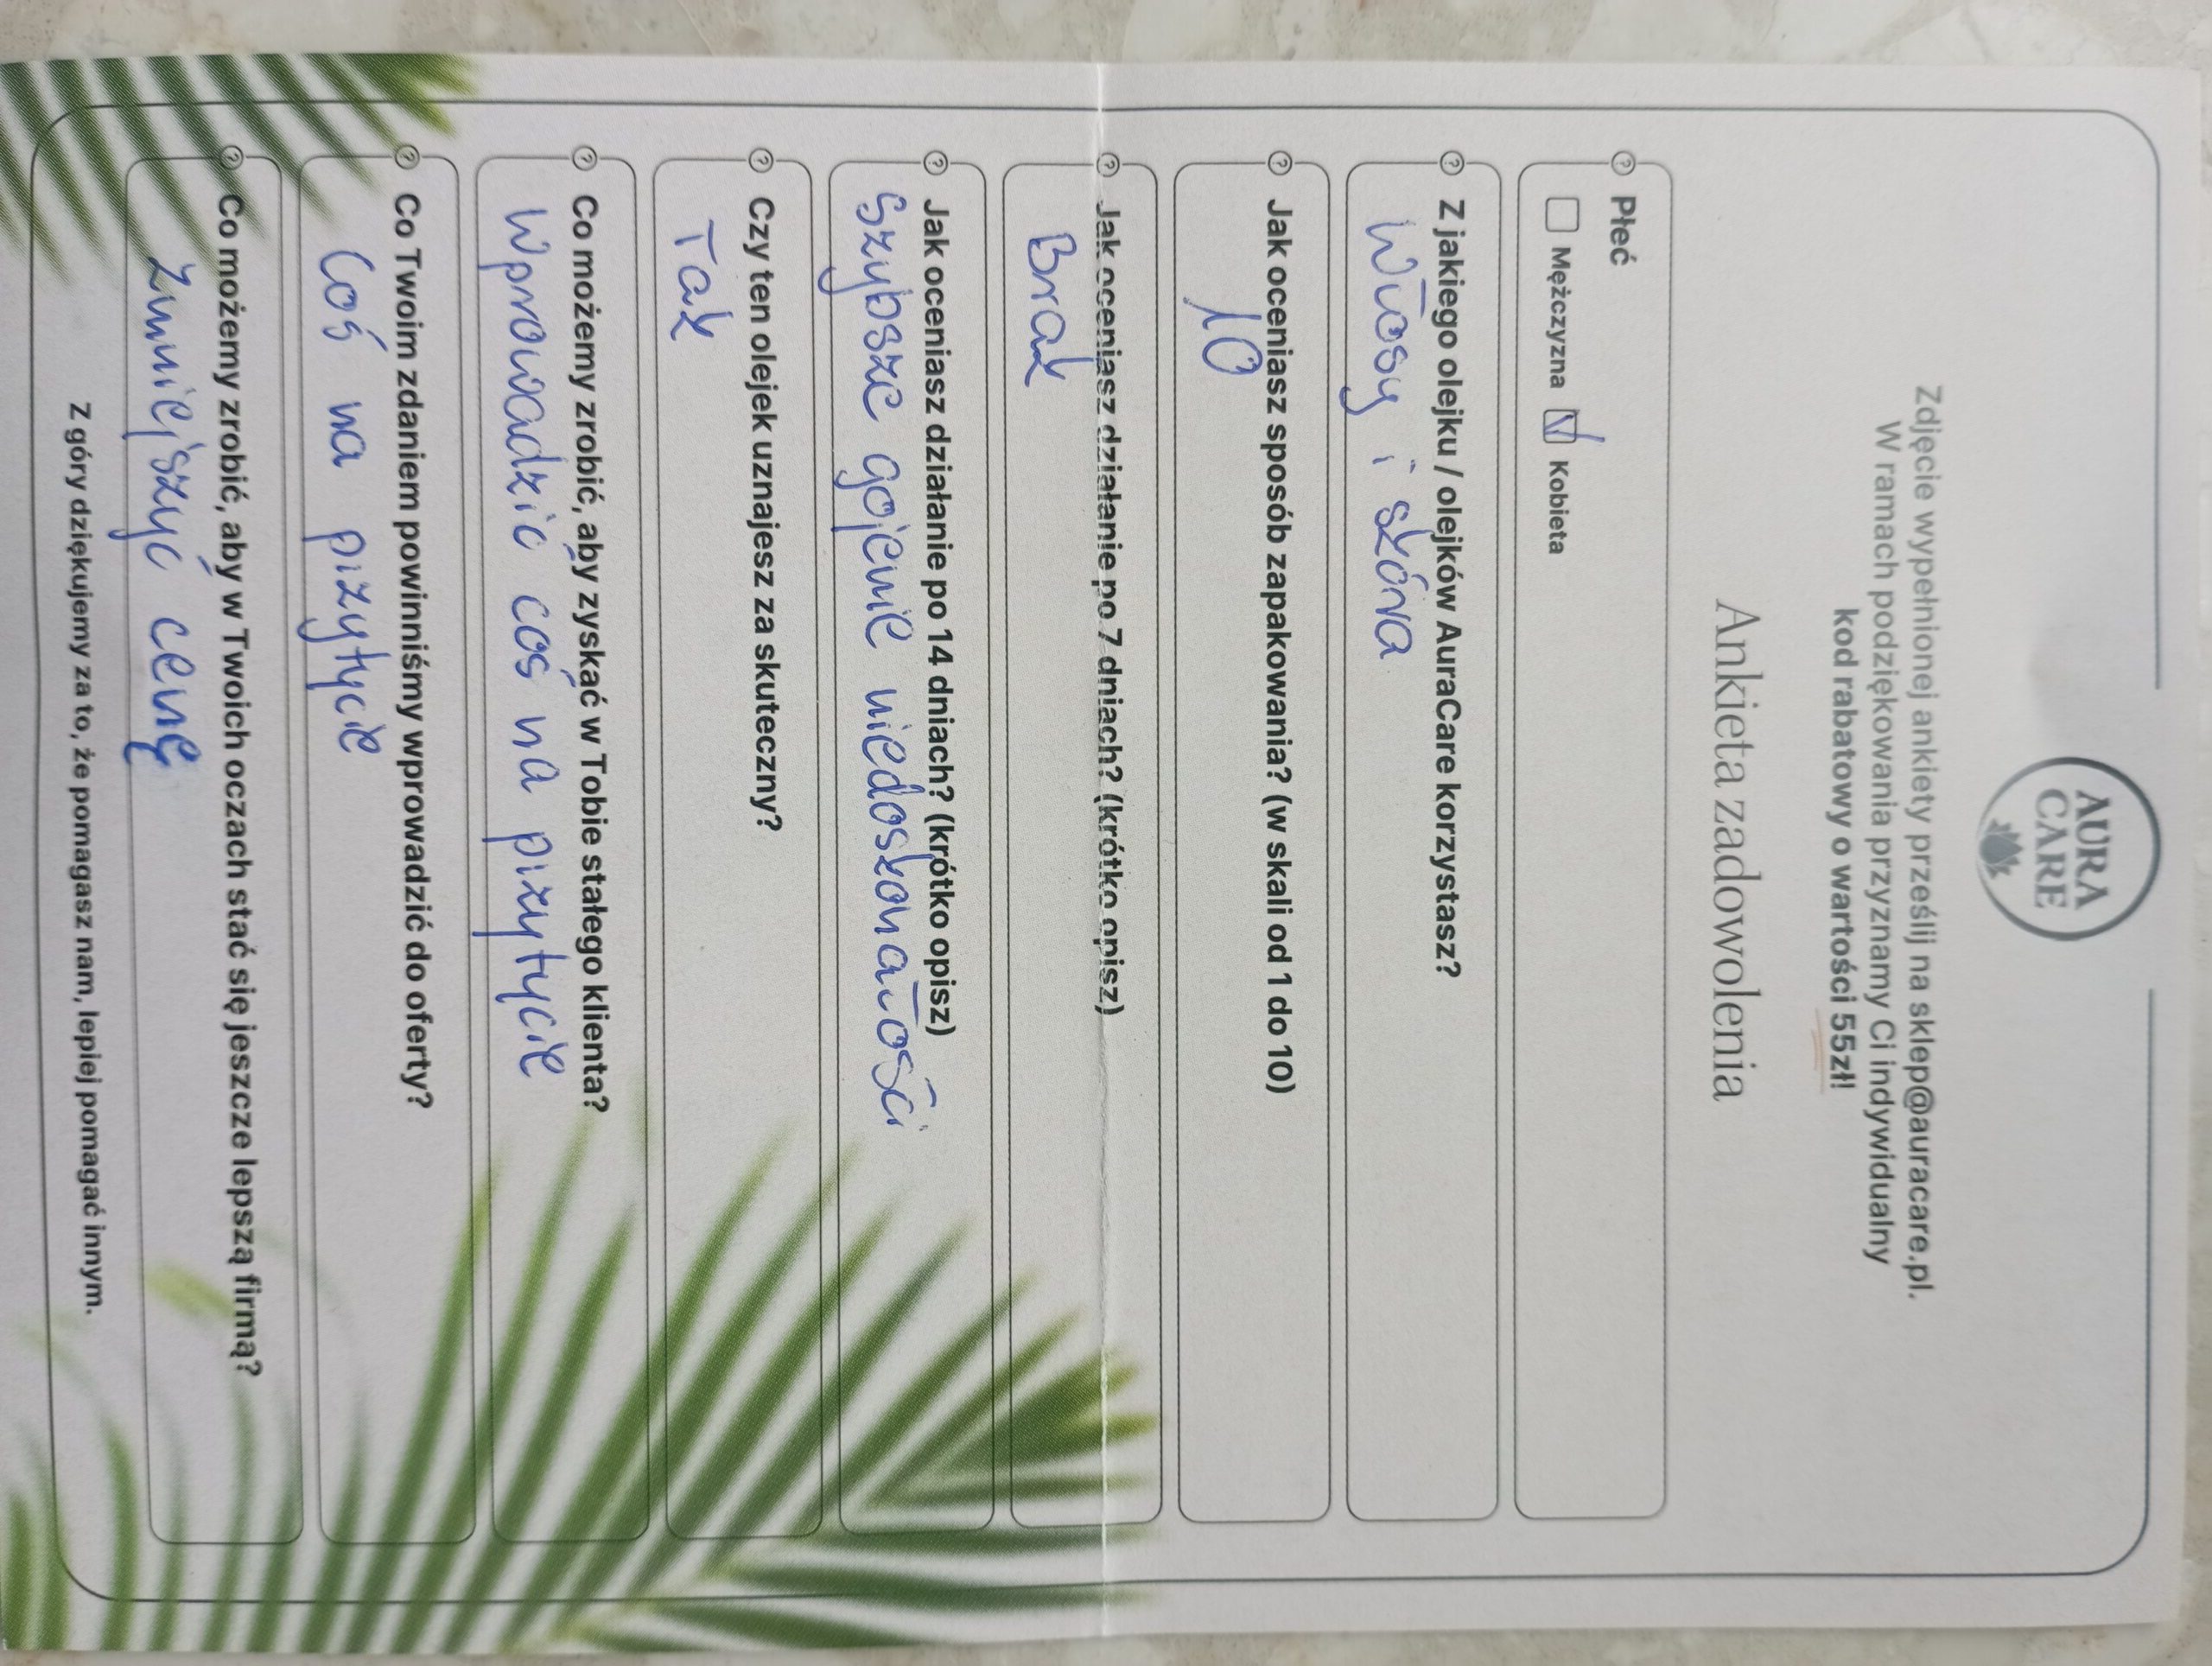 AURA
CARE
Zdjęcie wypełnionej ankiety prześlij na sklep@auracare.pl.
W ramach podziękowania przyznamy Ci indywidualny
kod rabatowy o wartości 55zł!
Ankieta zadowolenia
Płeć
Mężczyzna Kobieta
Z jakiego olejku / olejków AuraCare korzystasz?
Włosy i skóra
Jak oceniasz sposób zapakowania? (w skali od 1 do 10)
10
Jak oceniasz działanie po 7 dniach? (krótko opisz)
Brak
Jak oceniasz działanie po 14 dniach? (krótko opisz)
Szybsze gojenie niedoskonałości
Czy ten olejek uznajesz za skuteczny?
Tak
Co możemy zrobić, aby zyskać w Tobie stałego klienta?
Wprowadzić coś na przytycie
Co Twoim zdaniem powinniśmy wprowadzić do oferty?
Coś na przytycie
Co możemy zrobić, aby w Twoich oczach stać się jeszcze lepszą firmą?
Zmniejszyć cenę
Z góry dziękujemy za to, że pomagasz nam, lepiej pomagać innym.